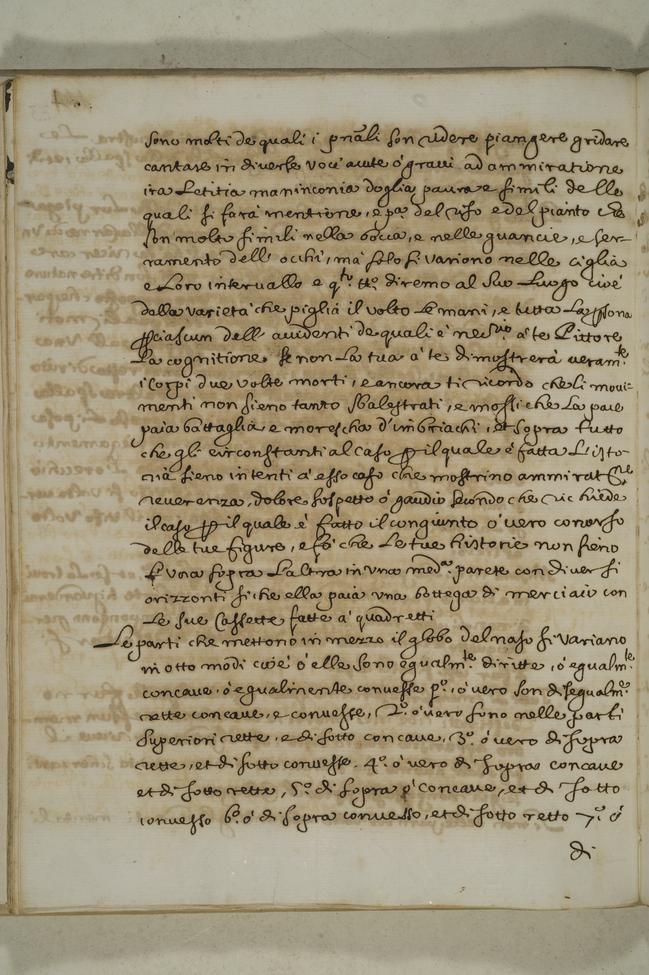 sono molti de quali i pnāli son ridere piangere gridare
cantare in diverse voci acute ó gravi ad ammiratione
ira Letitia maninconia doglia paura e simili delle
quali si fará mentione, e pa. del riso e del pianto che
son molto simili nella bocca, e nelle guancie, e ser-
ramento dell' occhi, má solo si variono nelle ciglia
e Loro intervallo e qto. tto. diremo al suo Luogo cioé
della varietá che piglia il volto Le mani, e tutta La psona
p ciascun dell' accidenti de quali é necrio. á te Pittore
La cognitione se non La tua á te dimostrerá veramte.
i corpi due volte morti, e ancora ti ricordo che li movi-
menti non sieno tanto sbalestrati, e mossi che La pace
paia battaglia e morescha d'imbriachi, et sopra tutto
che gli circonstanti al caso p il quale é fatta L'isto-
ria sieno intenti á esso caso che mostrino ammiratne
reverenza, dolore sospetto ó gaudio secondo che richiede
il caso p il quale é fatto il congiunto ó vero concorso
delle tue figure, e fá che Le tue historie non sieno
L'una sopra L'altra in una meda. parete con diversi
orizzonti si che ella paia una bottega di merciaio con
Le sue Cassette fatte á quadretti
Le parti che mettono in mezzo il globo del naso si variano
in otto modi cioé ó elle sono egualmte. diritte, ó egualmte.
concave, ó egualmente convesse po., ó vero son disegualme.
rette concave, e convesse, 2o. ó vero sono nelle parti
superiori rette, e di sotto concave, 3o. ó vero di sopra
rette, et di sotto convesse. 4o. ó vero di sopra concave
et di sotto rette, 5o. di sopra concave, et di sotto
convesso 6o. ó di sopra convesso, et di sotto retto 7o. ó
di